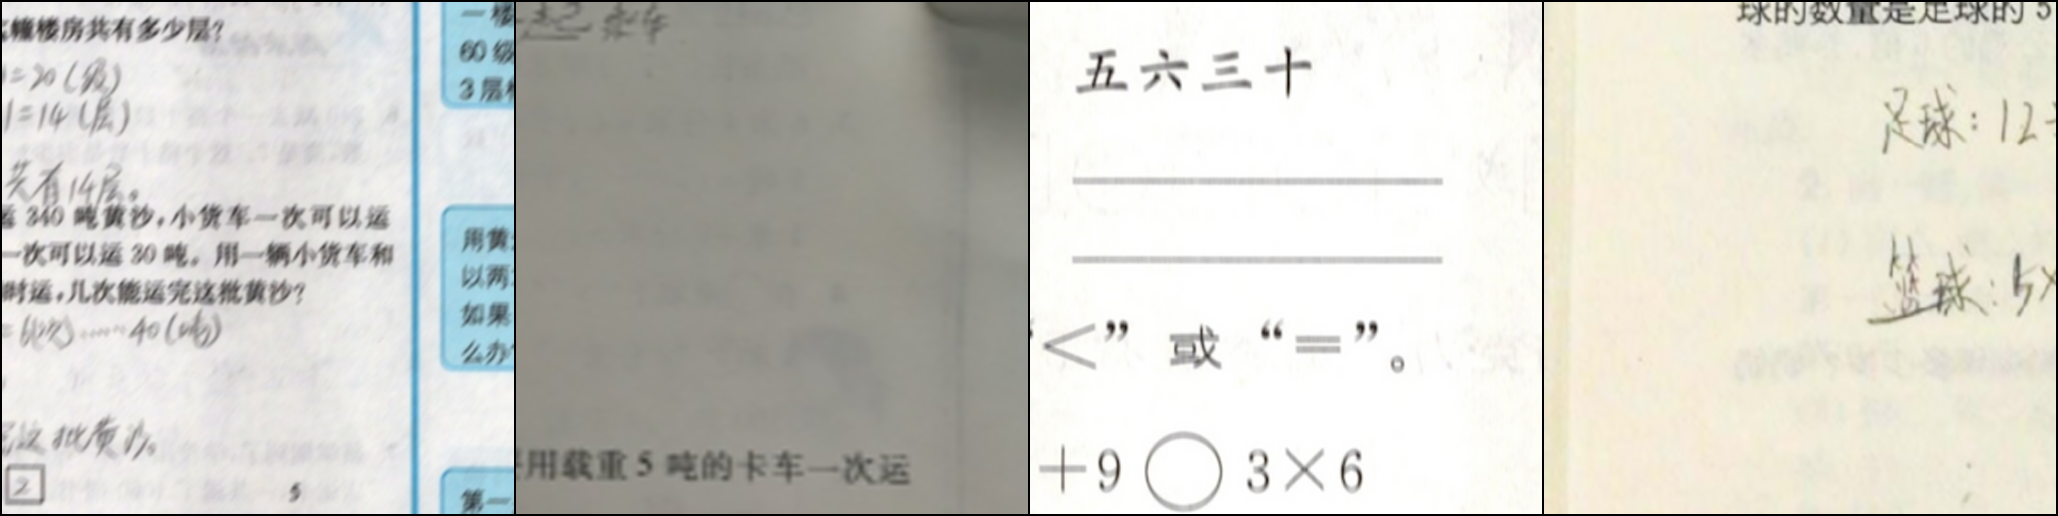 幢楼房共有多少层?
=20(级)
1=14(层)
共有14层。
运 340 吨黄沙,小货车一次可以运
一次可以运 30 吨。用一辆小货车和
时运,几次能运完这批黄沙?
=6(次)……40(吨)
这批黄沙。
2
一楼
60 级
3 层楼
用黄
以两
如果
么办
第一
用载重 5 吨的卡车一次运
五六三十
<” 或 “=”。
+9○3×6
球的数量是足球的 5
足球:12÷
篮球:5×